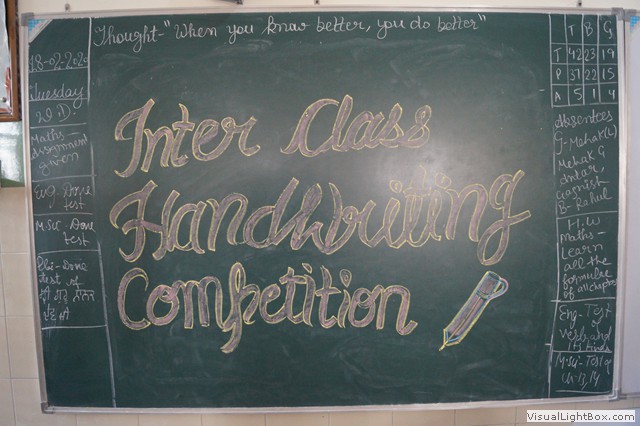 Thought- "When you know better, you do better"
18-02-2020
Tuesday
W.D.
Maths-
Assignment
given
Eng- Done
test
M.Sc- Done
test
Pbi- Done
Test of
Inter Class
Handwriting
Competition
T B G
T 42 23 19
P 37 22 15
A 5 1 4
Absentees
G- Mehak(L)
Mehak G
B- Rahul
H.W
Maths-
Learn
all the
formulae
of all chapters
Eng- Test
of
verb and
M.Sc- Test of
VisualLightBox.com